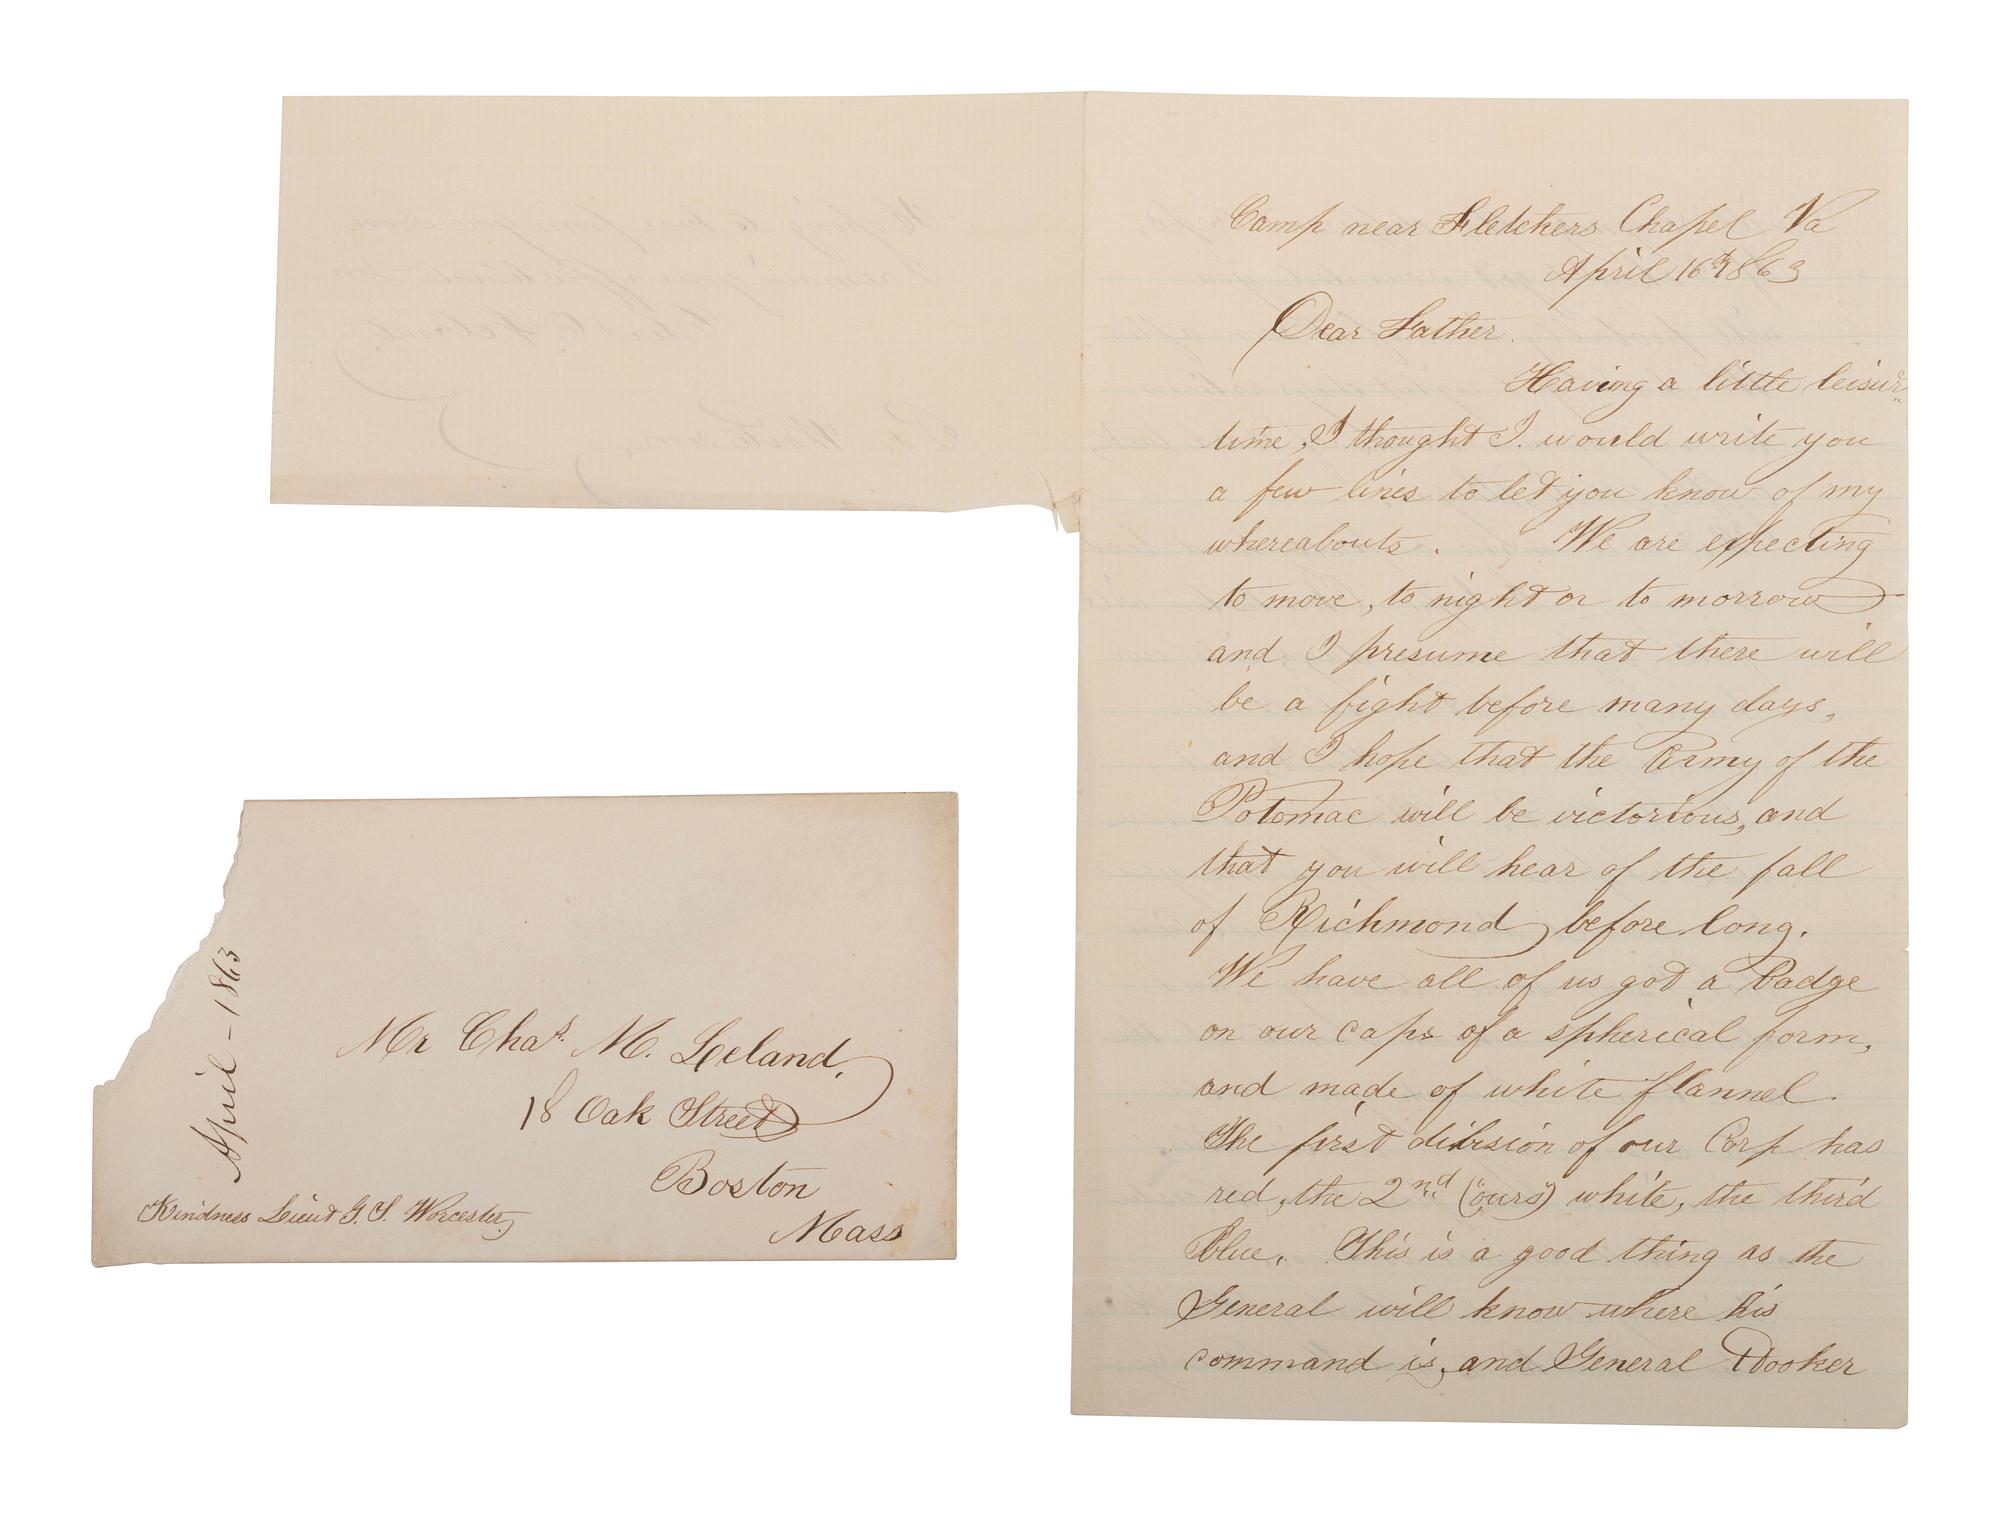 Camp near Fletchers Chapel Va
April 16th 1863
Dear Father.
Having a little leisure
time, I thought I would write you
a few lines to let you know of my
whereabouts. We are expecting
to move, to night or to morrow
and I presume that there will
be a fight before many days,
and I hope that the Army of the
Potomac will be victorious, and
that you will hear of the fall
of Richmond before long.
We have all of us got a badge
on our caps of a spherical form,
and made of white flannel.
The first division of our Corp has
red, the 2nd ("ours") white, the third
blue. This is a good thing as the
General will know where his
command is, and General Hooker
April - 1863
Mr Chas. M. Leland.
18 Oak Street
Boston
Mass
Kindness Lieut G. S. Worcester,